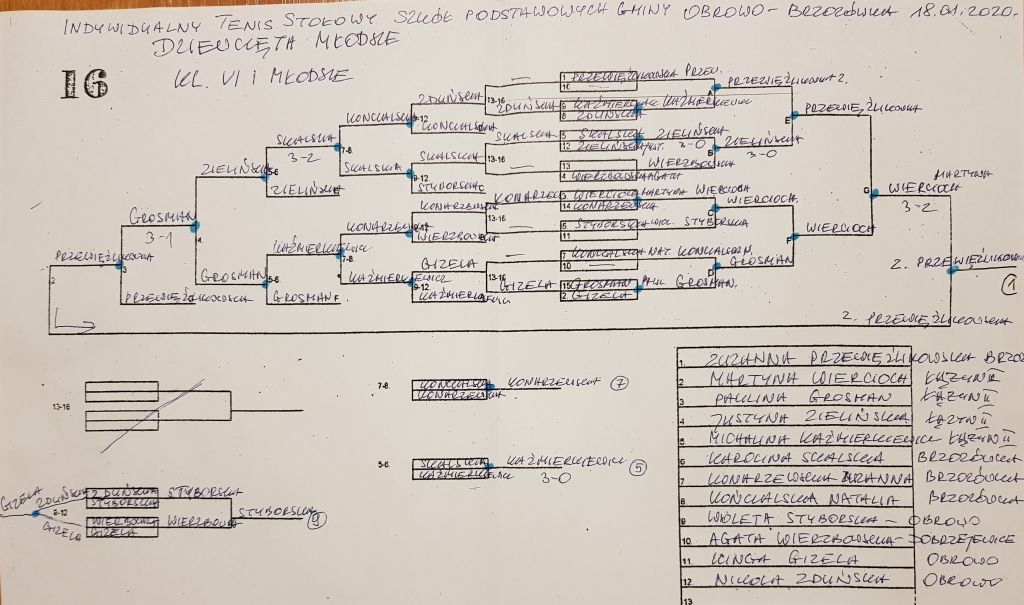 INDYWIDUALNY TENIS STOŁOWY SZKÓŁ PODSTAWOWYCH GMINY OBROWO - BRZOZÓWKA 18.01.2020.
DZIEWCZĘTA MŁODSZE
16 KL. VI I MŁODSZE
1 PRZEWIĘŹLIKOWSKA
16
PRZEWIĘŹLIKOWSKA Z.
13-16
ZDUŃSKA
ZDUŃSKA
8 ZDUŃSKA
KAŹMIERKIEWICZ
A
PRZEWIĘŹLIKOWSKA
E
KONCKALSKA
9-12
KONCKALSKA
SKALSKA
5 SKALSKA
12 ZIELIŃSKA
ZIELIŃSKA
3-0
B
ZIELIŃSKA
3-0
SKALSKA
3-2
7-8
SKALSKA
9-12
SKALSKA
STYBORSKA
13-16
13
4 WIERZBOWSKA AGATA
WIERZBOWSKA
ZIELIŃSKA
5-6
ZIELIŃSKA
KONARZEWSKA
WIERZBOWSKA
KONARZEWSKA
13-16
3 WIERCIOCH MARTYNA
14 KONARZEWSKA
WIERCIOCH
C
WIERCIOCH
MARTYNA
G
WIERCIOCH
3-2
GROSMAN
3-1
4
KONARZEWSKA
6 STYBORSKA WIOL.
11
STYBORSKA
F
WIERCIOCH
PRZEWIĘŹLIKOWSKA
3
KAŹMIERKIEWICZ
7-8
KAŹMIERKIEWICZ
9-12
GIZELA
KAŹMIERKIEWICZ
7 KONCKALSKA NAT.
10
KONCKALSKA N.
D
GROSMAN
Z. PRZEWIĘŹLIKOWSKA
1
2
PRZEWIĘŹLIKOWSKA
GROSMAN
5-6
GROSMAN
GIZELA
13-16
15 GROSMAN PAUL.
2 GIZELA
GROSMAN
Z. PRZEWIĘŹLIKOWSKA
13-16
7-8.
KONCKALSKA
KONARZEWSKA
KONARZEWSKA 7
5-6.
SKALSKA
KAŹMIERKIEWICZ
KAŹMIERKIEWICZ 5
3-0
GIZELA
ZDUŃSKA
ZDUŃSKA
STYBORSKA
STYBORSKA
9-12
GIZELA
WIERZBOWSKA
GIZELA
WIERZBOWSKA
STYBORSKA 9
1. ZUZANNA PRZEWIĘŹLIKOWSKA BRZOZ
2 MARTYNA WIERCIOCH ŁĄŻYN II
3 PAULINA GROSMAN ŁĄŻYN II
4 JUSTYNA ZIELIŃSKA ŁĄŻYN II
5 MICHALINA KAŹMIERKIEWICZ ŁĄŻYN II
6 KAROLINA SKALSKA BRZOZÓWKA
7 KONARZEWSKA ZUZANNA BRZOZÓWKA
8 KOŃCKALSKA NATALIA BRZOZÓWKA
9 WIOLETA STYBORSKA - OBROWO
10. AGATA WIERZBOWSKA - DOBRZEJEWICE
11. KINGA GIZELA OBROWO
12. NIKOLA ZDUŃSKA OBROWO
13